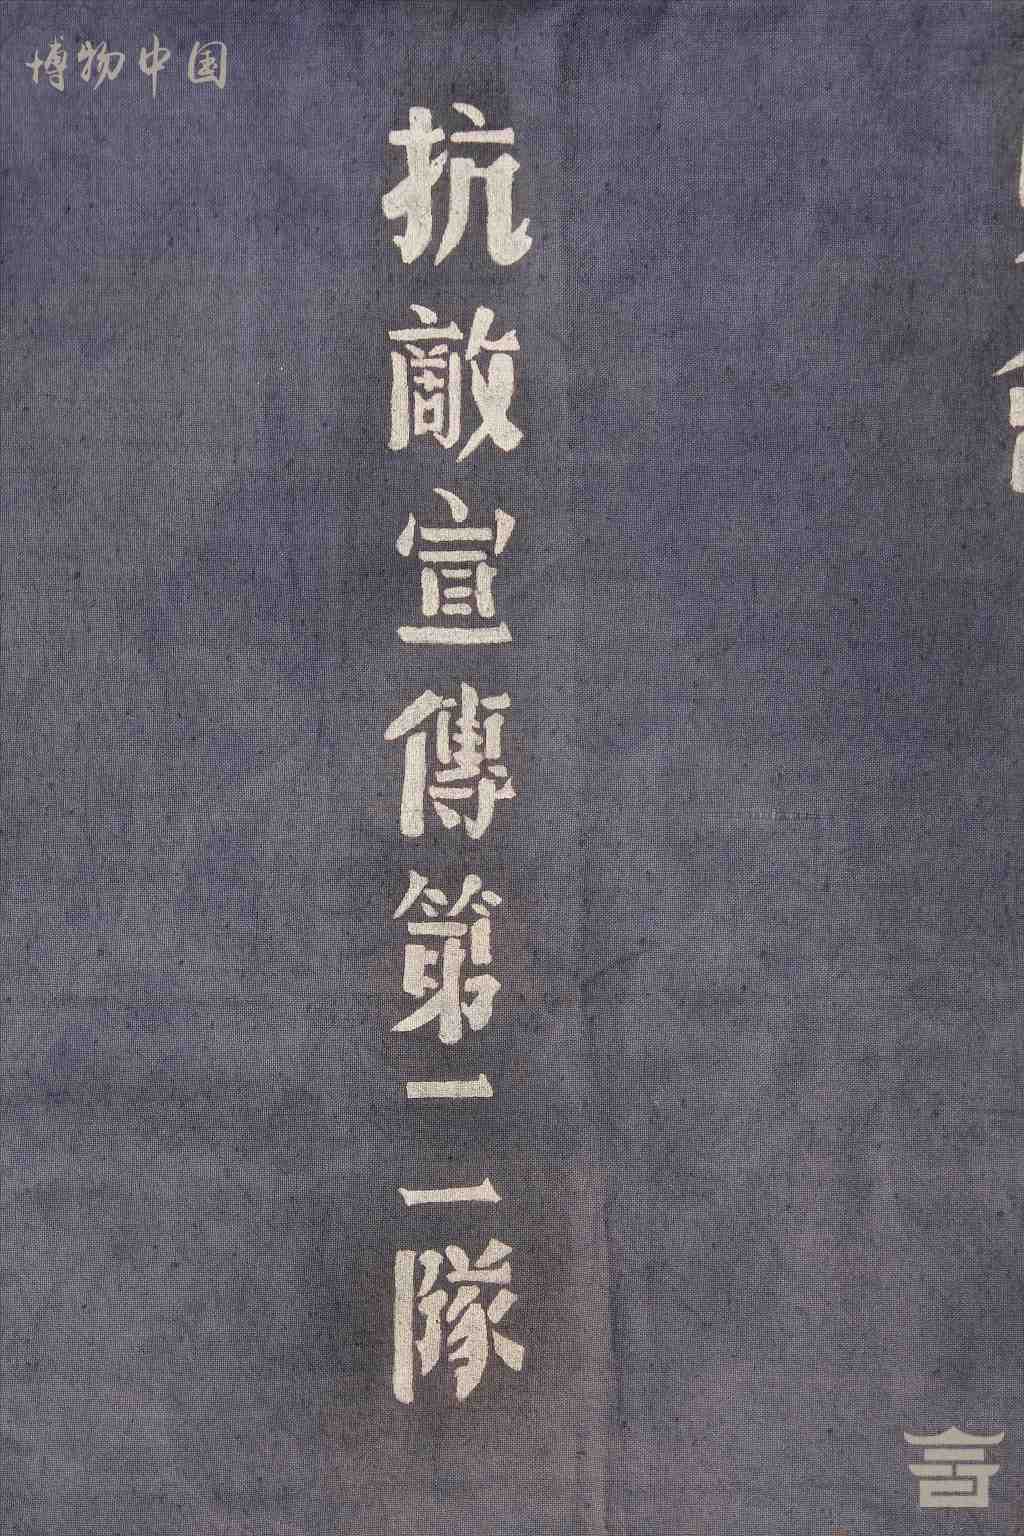 博物中国
抗敵宣傳第二隊